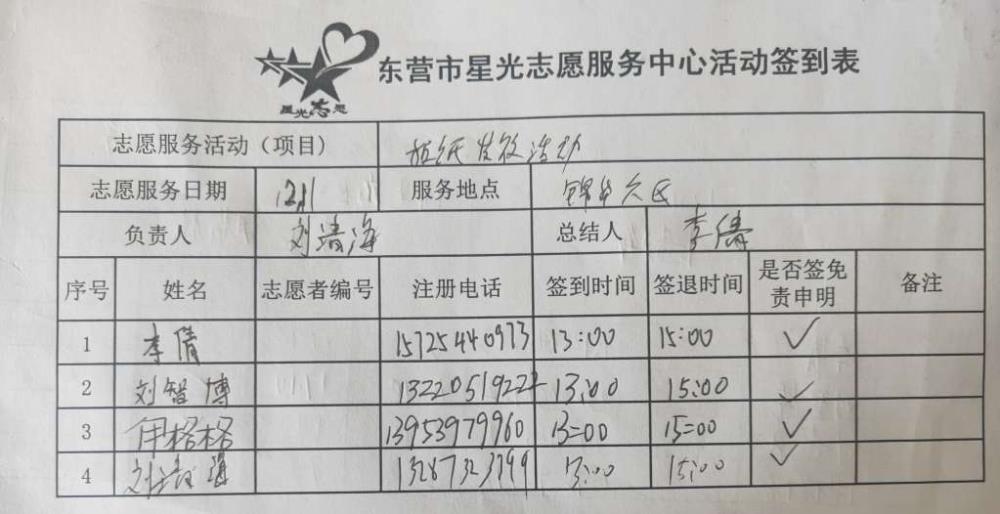 星光志愿
东营市星光志愿服务中心活动签到表
志愿服务活动（项目） 报纸发放活动
志愿服务日期 12.1 服务地点 锦华六区
负责人 刘清海 总结人 李倩
序号 姓名 志愿者编号 注册电话 签到时间 签退时间 是否签免责申明 备注
1 李倩 15725440973 13:00 15:00 ✓
2 刘智博 13:00 15:00 ✓
3 伊格格 13953979960 13:00 15:00 ✓
4 刘清海 13:00 15:00 ✓